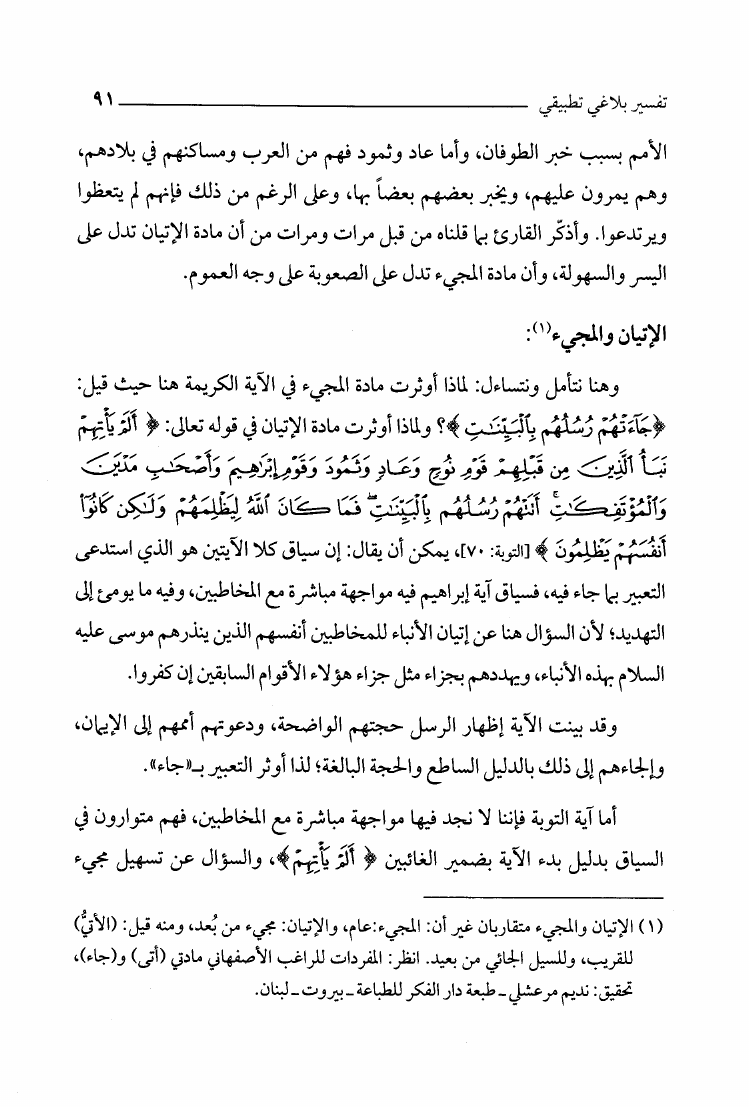 تفسير بلاغي تطبيقي ٩١
الأمم بسبب خبر الطوفان، وأما عاد وثمود فهم من العرب ومساكنهم في بلادهم،
وهم يمرون عليهم، ويخبر بعضهم بعضاً بها، وعلى الرغم من ذلك فإنهم لم يتعظوا
ويرتدعوا. وأذكّر القارئ بما قلناه من قبل مرات ومرات من أن مادة الإتيان تدل على
اليسر والسهولة، وأن مادة المجيء تدل على الصعوبة على وجه العموم.
الإتيان والمجيء(١):
وهنا نتأمل ونتساءل: لماذا أوثرت مادة المجيء في الآية الكريمة هنا حيث قيل:
﴿جَآءَتْهُمْ رُسُلُهُم بِٱلْبَيِّنَٰتِ﴾؟ ولماذا أوثرت مادة الإتيان في قوله تعالى: ﴿ أَلَمْ يَأْتِهِمْ
نَبَأُ ٱلَّذِينَ مِن قَبْلِهِمْ قَوْمِ نُوحٍ وَعَادٍ وَثَمُودَ وَقَوْمِ إِبْرَٰهِيمَ وَأَصْحَٰبِ مَدْيَنَ
وَٱلْمُؤْتَفِكَٰتِ ۚ أَتَتْهُمْ رُسُلُهُم بِٱلْبَيِّنَٰتِ ۖ فَمَا كَانَ ٱللَّهُ لِيَظْلِمَهُمْ وَلَٰكِن كَانُوٓا۟
أَنفُسَهُمْ يَظْلِمُونَ ﴾ [التوبة: ٧٠]، يمكن أن يقال: إن سياق كلا الآيتين هو الذي استدعى
التعبير بما جاء فيه، فسياق آية إبراهيم فيه مواجهة مباشرة مع المخاطبين، وفيه ما يومئ إلى
التهديد؛ لأن السؤال هنا عن إتيان الأنباء للمخاطبين أنفسهم الذين ينذرهم موسى عليه
السلام بهذه الأنباء، ويهددهم بجزاء مثل جزاء هؤلاء الأقوام السابقين إن كفروا.
وقد بينت الآية إظهار الرسل حجتهم الواضحة، ودعوتهم أممهم إلى الإيمان،
وإلجاءهم إلى ذلك بالدليل الساطع والحجة البالغة؛ لذا أوثر التعبير بـ«جاء».
أما آية التوبة فإننا لا نجد فيها مواجهة مباشرة مع المخاطبين، فهم متوارون في
السياق بدليل بدء الآية بضمير الغائبين ﴿ أَلَمْ يَأْتِهِمْ ﴾، والسؤال عن تسهيل مجيء
(١) الإتيان والمجيء متقاربان غير أن: المجيء:عام، والإتيان: مجيء من بُعد، ومنه قيل: (الأتيُّ)
للقريب، وللسيل الجائي من بعيد. انظر: المفردات للراغب الأصفهاني مادتي (أتى) و(جاء)،
تحقيق: نديم مرعشلي ـ طبعة دار الفكر للطباعة ـ بيروت ـ لبنان.